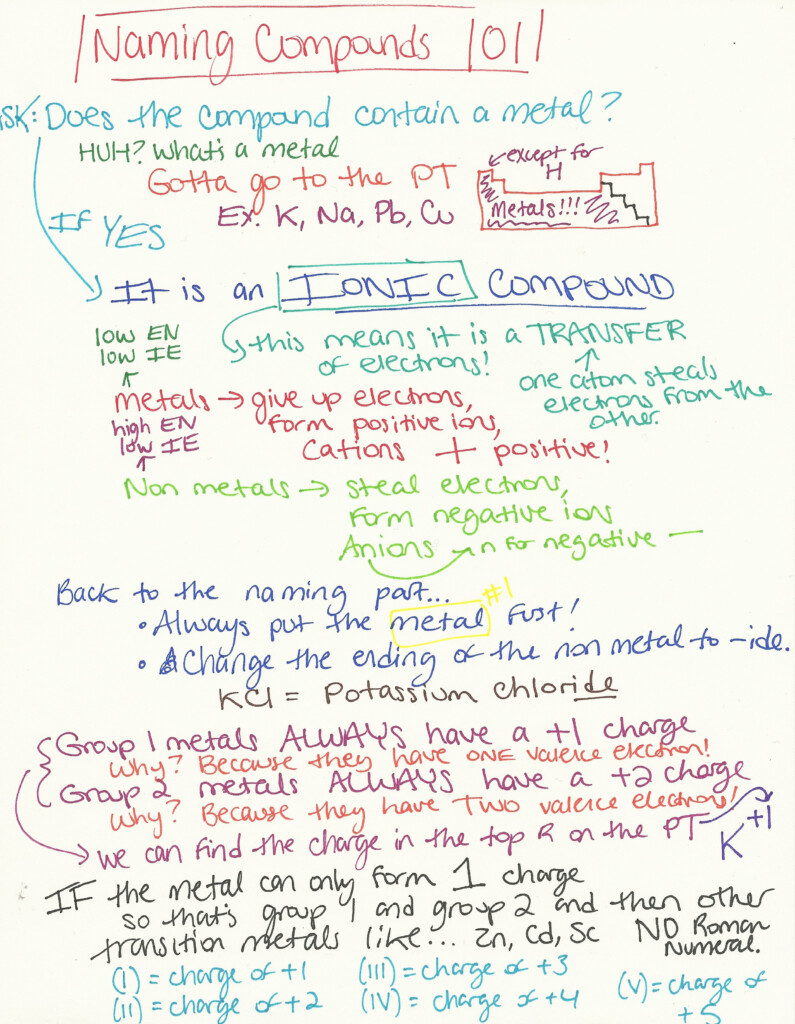 Naming Compounds 101
ASK: Does the compound contain a metal?
HUH? what's a metal
Gotta go to the PT
Ex. K, Na, Pb, Cu
except for
H
Metals!!!
If YES
It is an IONIC COMPOUND
low EN
low IE
this means it is a TRANSFER
of electrons!
one atom steals
electrons from the
other.
metals → give up electrons,
form positive ions,
Cations + positive!
high EN
low IE
Non metals → steal electrons,
form negative ions
Anions → n for negative —
Back to the naming part...
• Always put the metal first!
#1
• Change the ending of the non metal to -ide.
KCl = Potassium chloride
Group 1 metals ALWAYS have a +1 charge
Why? Because they have ONE valence electron!
Group 2 metals ALWAYS have a +2 charge
Why? Because they have TWO valence electrons!
→ we can find the charge in the top R on the PT
K+1
IF the metal can only form 1 charge
so that's group 1 and group 2 and then other
transition metals like... Zn, Cd, Sc NO Roman
Numeral.
(I) = charge of +1 (III) = charge of +3
(II) = charge of +2 (IV) = charge of +4 (V) = charge of
+5